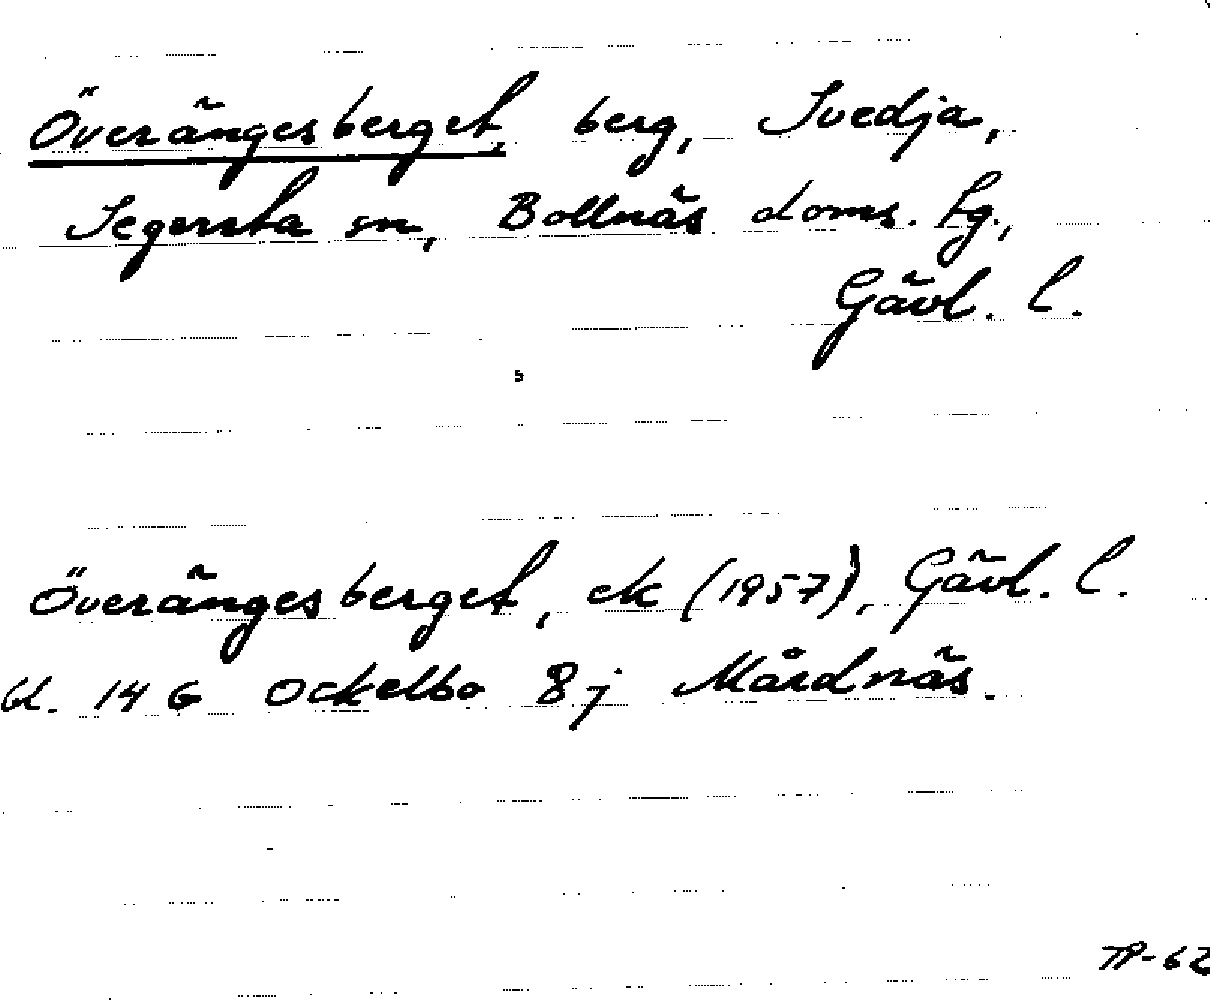 Överängesberget, berg, Svedja,
Segersta sn, Bollnäs doms. fg.,
Gävl. l.
Överängesberget, ek (1957), Gävl. l.
bl. 14 G Ockelbo 8j Mårdnäs.
TP-62